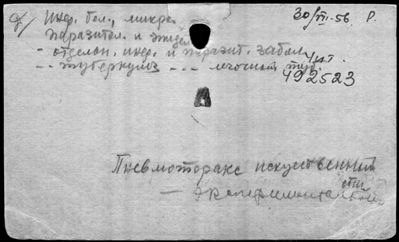 Инф. бол., микро. 30/III-56 Р.
паразитол. и эпид.
- отделен. инф. и паразит. забол.
- - туберкулёз - - - легочный туб.
492523
Пневмоторакс искусственный
— экспериментальный